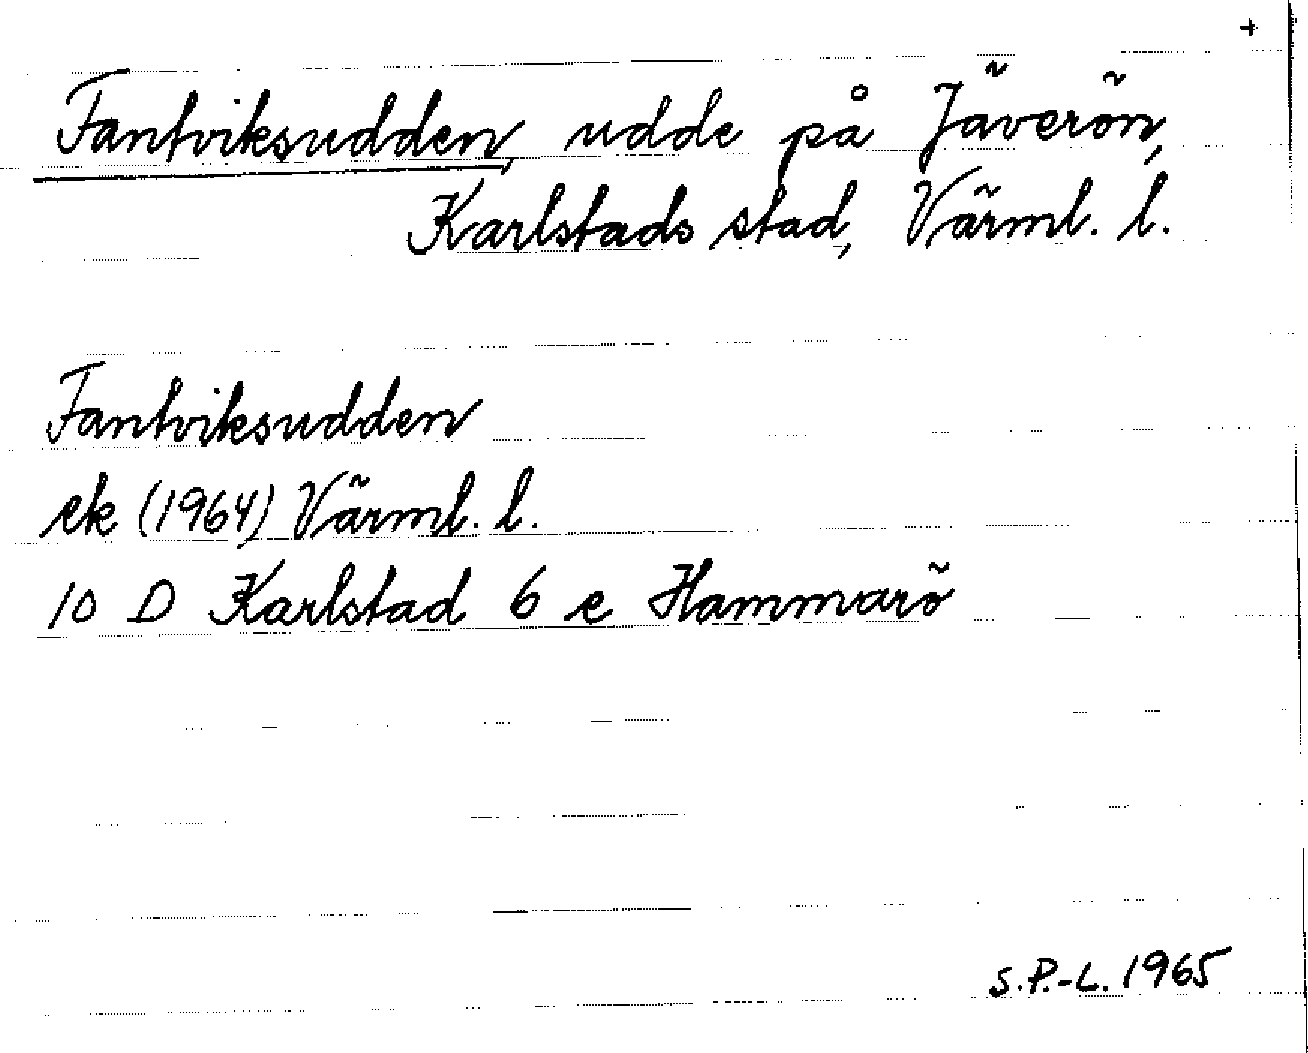 +
Fantviksudden, udde på Jäverön,
Karlstads stad, Värml. l.
Fantviksudden
ek (1964) Värml. l.
10 D Karlstad 6 e Hammarö
S.P.-L. 1965